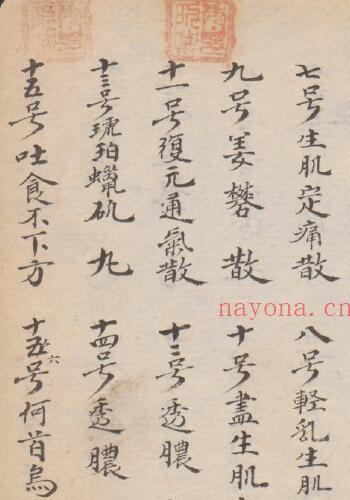 七号生肌定痛散
八号輕乳生肌
九号姜礬散
十号盡生肌
十一号復元通氣散
十二号透膿
十三号琥珀蠟矾丸
十四号透膿
十五号吐食不下方
十六号何首烏
nayona.cn